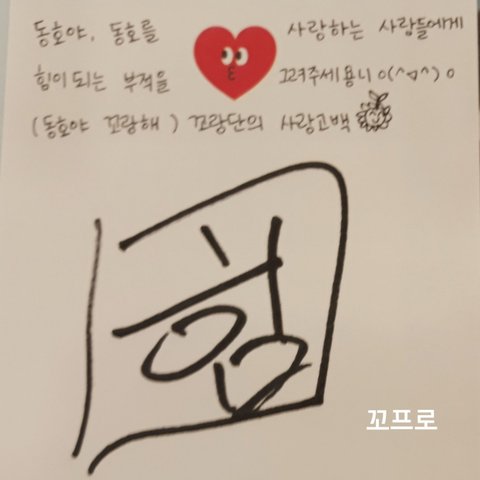 동호야, 동호를 사랑하는 사람들에게
힘이 되는 부적을 그려주세용니 o(^ㅁ^)o
(동호야 꼬랑해) 꼬랑단의 사랑고백
힘
꼬프로